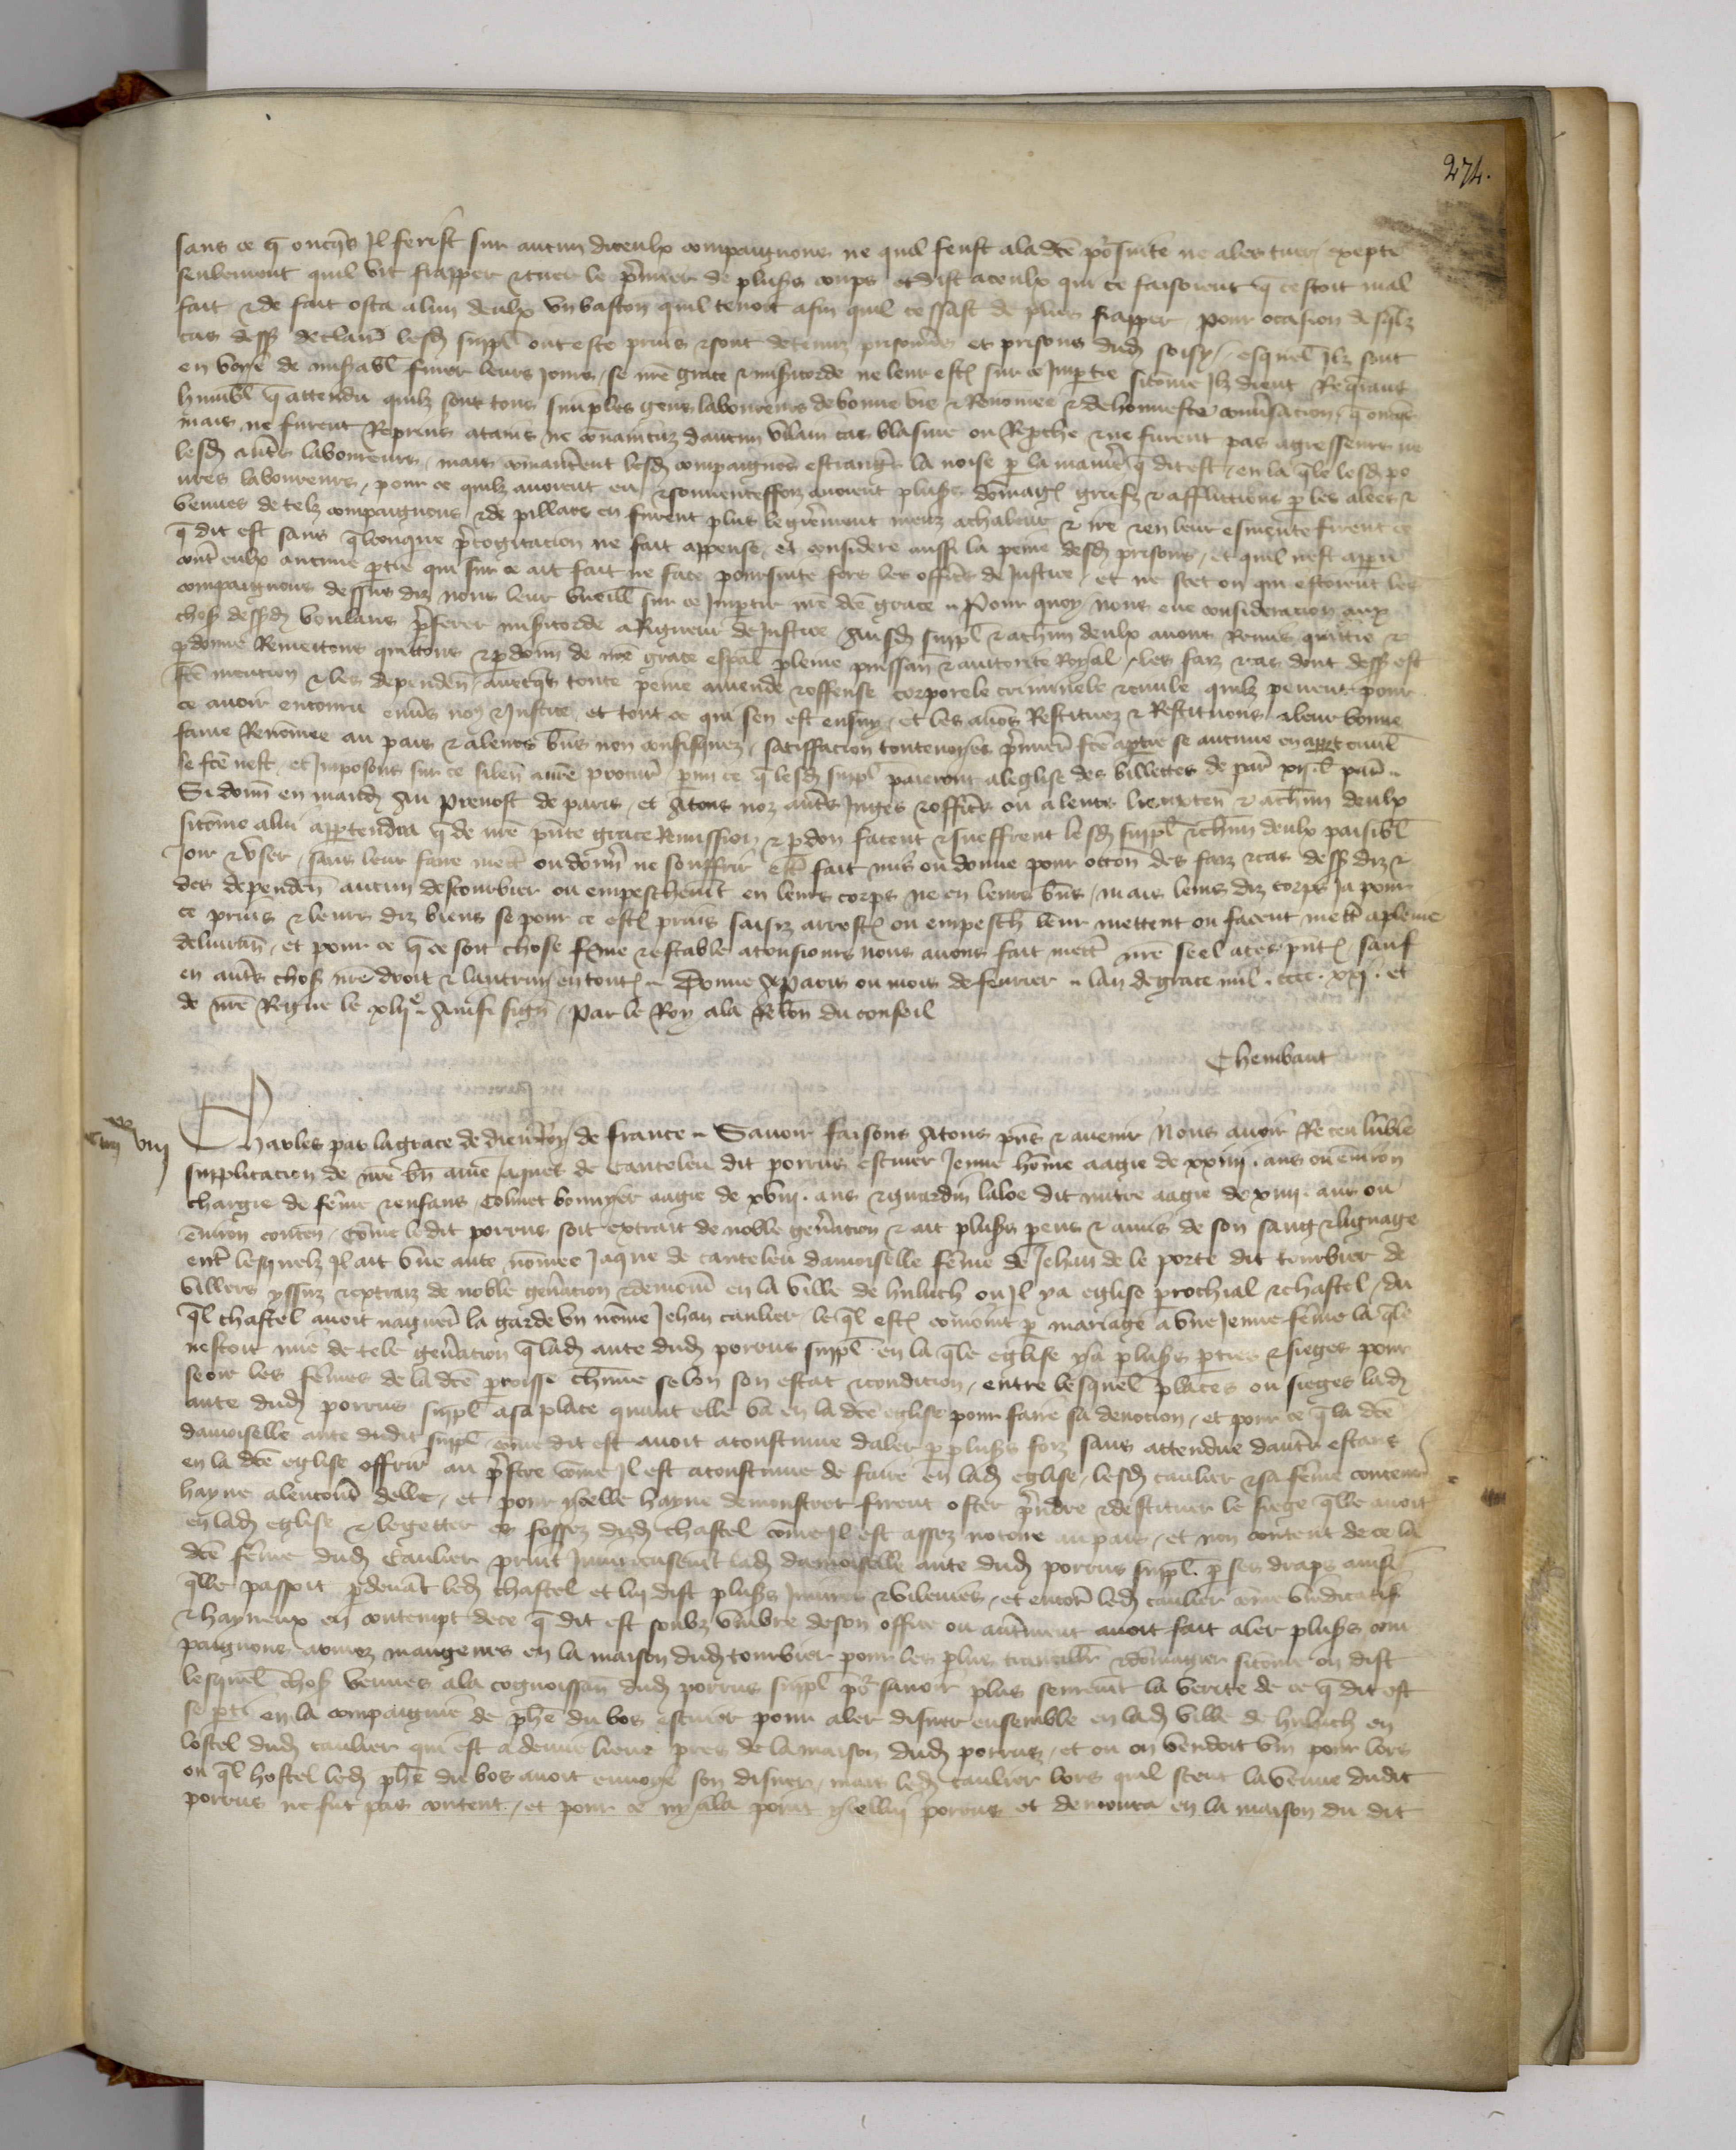 274.
sans ce q̄ oncq̄s Il ferist sur aucun diceulx compaignons ne quil feust ala dc̄e poͬsuite ne ales tuer / expte
seulement quil vit frapper ⁊ tuer le p̄mier de plus̄s coups et dist a ceulx qui ce faisoient q̄ cestoit mal
fait ⁊ de fait osta alun deulx vn baston quil tenoit afin quil cessast de plus frapper / pour ocasion desq̄lz
cas dess̄ declair̄ lesd̄ suppl̄ ont este prins ⁊ sont detenuz prisoñs es prisons dud̄ soisy / esquel̄ Ilz sont
en voye de mis̄abl̄ finer leurs Jours / se nr̄e grace ⁊ mis̄icorde ne leur est sur ce Imp̄tie sicōme Ilz dient Req̄rans
humbl̄ q̄ attendu quilz sont tous simples gens laboureurs de bonne vie ⁊ Renomee ⁊ de honneste conũsacion / q̄ oncq̄s
mais ne furent Reprins atains ne conaincuz daucun vilain cas blasme ou Rep̄che ⁊ ne furent pas agresseurs ne
lesd̄ aut̄s laboureurs / mais cōmancent lesd̄ compaignons estranḡs la noise p̄ la manie᷑ q̄ dit est / en la q̄le lesd̄ po
ures laboureurs / pour ce quilz auoient eu ⁊ souuenteffoiz auoient plus̄s dōmaḡ griefz ⁊ afflictions p̄ les alees ⁊
venues de telz compaignons ⁊ de pillars en furent plus legie᷑ment meuz achaleur ⁊ ire ⁊ en leur esmeute firent ce
q̄ dit est sans q̄lconque p̄cogitacion ne fait appense / et considere aussi la peine desd̄ prisons / et quil nest apparu
cont̄ eulx aucune p̄tie qui sur ce ait fait ne face poursuite fors les offic̄s de Justice / et ne scet on qui estoient les
compaignons dessus diz nous leur vueill̄ sur ce Imp̄tir nr̄e dc̄e grace .. Pour quoy / nous eue consideracion aux
chos̄ dessusd̄ voulans p̄ferer mis̄icorde a Rigueur de Justice Ausd̄ suppl̄ ⁊ achun deulx auons Remis quictie ⁊
p̄donne Remettons quittons ⁊ p̄donn̄ de nr̄e grace esp̄al pleine puissan̄ ⁊ auctorite Royal / les faiz ⁊ cas dont dess̄ est
fc̄e mention ⁊ les dependen̄ / auecq̄s toute peine amende ⁊ offense corporele criminele ⁊ ciuile quilz peuent pour
ce auoir encouru enũs no᷒ ⁊ Justice / et tout ce qui sen est ensuy / et les auōs Restituez ⁊ Restituons a leur bonne
fame Renōmee au pais ⁊ a leurs b̄ns non confisquez / satisfacion toutenoyes p̄mie᷑ fc̄e ap̄tie se aucune en appt ciuil̄
se fc̄e nest / et Imposons sur ce silen̄ anr̄e procur̄ / p̄my ce q̄ lesd̄ suppl̄ paieront aleglise des billettes de par̄ xij.l̄ par̄ ..
Si donn̄ en mand̄ Au Preuost de paris / et Atous noz aut̄s Juges ⁊ offic̄s ou a leurs lieuxten̄ ⁊ achūn deulx
sicōme alui appartendra q̄ de nr̄e pn̄te grace Remission ⁊ p̄don facent ⁊ sueffrent lesd̄ suppl̄ ⁊ chūn deulx paisibl̄
Joir ⁊ vser / sans leur faire mect̄ ou donn̄ ne souffrir estr̄ fait mis ou donne pour occōn des faiz ⁊ cas dess̄ diz ⁊
des dependen̄ aucun destourbier ou empeschem̄t en leurs corps ne en leurs b̄ns / mais leurs diz corps Ja pour
ce prins ⁊ leurs diz biens se pour ce est prins saisiz arrest ou empesch̄ leur mettent ou facent mect̄ apleine
deliuran̄ / et pour ce q̄ ce soit chose ferme ⁊ estable atousiours nous auons fait mect̄ nr̄e seel aces pn̄t / sauf
en aut̄s chos̄ nr̄e droit ⁊ lautruy en tout .. Donne A Paris ou mois de feurier .. lan de grace mil . cccc . xxj . et
de nr̄e Regne le xlij.ᵉ Ainsi sign̄ / Par le Roy ala Relōn du conseil
Chembaut
Charles par la grace de dieu Roy de france .. Sauoir faisons Atous pn̄s ⁊ auenir Nous auoir Receu lūble
supplicacion de nr̄e bn̄ ame Jaquet de Canteleu dit porrus escuier Jeune hōme aagie de xxiiij . ans ou enuiron
chargie de fēme ⁊ enfans / Colinet aagie de xviij . ans ⁊ guardin laloe dit mitre aagie de xiiij . ans ou
enuiron conten̄ / Cōme le dit porrus soit extrait de noble gen̄acion ⁊ ait plus̄s pens ⁊ amis de son sang ⁊ lignage
ent̄ lesquelz Il ait vne ante nōmee Jaque de canteleu damoiselle fēme de Jehan de le porte dit tourbier de
villers yssuz ⁊ extraiz de noble gen̄acion ⁊ demour̄ en la ville de huluch ou Il ya eglise p̄rochial ⁊ chastel / du
q̄l chastel auoit nague᷑ la garde vn nōme Jehan caulier / le q̄l est conioint p̄ mariage a vne Jeune fēme la q̄le
nestoit mie de tele gen̄acion q̄ lad̄ ante dud̄ porrus suppl̄ . en la q̄le eglise ya plus̄s p̄ties ⁊ sieges pour
seoir les fēmes de la dc̄e p̄roisse chūne selon son estat ⁊ condicion / entre lesquel̄ places ou sieges lad̄
ante dud̄ porrus suppl̄ a sa place quant elle va en la dc̄e eglise pour faire sa deuocion / et pour ce q̄ la dc̄e
damoiselle ante dudit suppl̄ cōme dit est auoit acoustume daler p̄ plus̄s foiz sans attendue dautr̄ estans
en la dc̄e eglise offrir au p̄stre cōme Il est acoustume de faire en lad̄ eglise / lesd̄ caulier ⁊ sa fēme conceur̄
hayne alencont̄ delle / et pour ycelle hayne demonstrer firent oster p̄ndre ⁊ destituer le siege q̄lle auoit
en lad̄ eglise ⁊ le getter es fossez dud̄ chastel cōme Il est assez notoire au pais / et non content de ce la
dc̄e fēme dud̄ Caulier print Iniurieusem̄t lad̄ damoiselle ante dud̄ porrus suppl̄ . p̄ ses draps ainsi
q̄lle passoit p̄deuāt led̄ chastel et luy dist plus̄s Iniures ⁊ vilenies / et encor̄ led̄ caulier cōme vindicatif
⁊ hayneux en contempt de ce q̄ dit est soubz vmbre de son office ou aut̄ment auoit fait aler plus̄s com
paignons armez mangeurs en la maison dud̄ tourbier pour les plus trauaillr̄ ⁊ dōmagier sicōme on dist
lesquel̄ chos̄ venues ala cognoissan̄ dud̄ porrus suppl̄ poͬ sauoir plus seurem̄t la verite de ce q̄ dit est
se pti en la compaignie de phe᷑ du bos escuier pour aler disner ensemble en lad̄ ville de huluch en
lostel dud̄ caulier qui est a demie lieue pres de la maison dud̄ porrus / et ou on vendoit vin pour lors
ou q̄l hostel led̄ phe᷑ du bos auoit enuoye son disner / mais led̄ caulier lors quil sceut la venue dudit
porrus ne fut pas content / et pour ce ny ala point ycellui porrus et demoura en la maison du dit